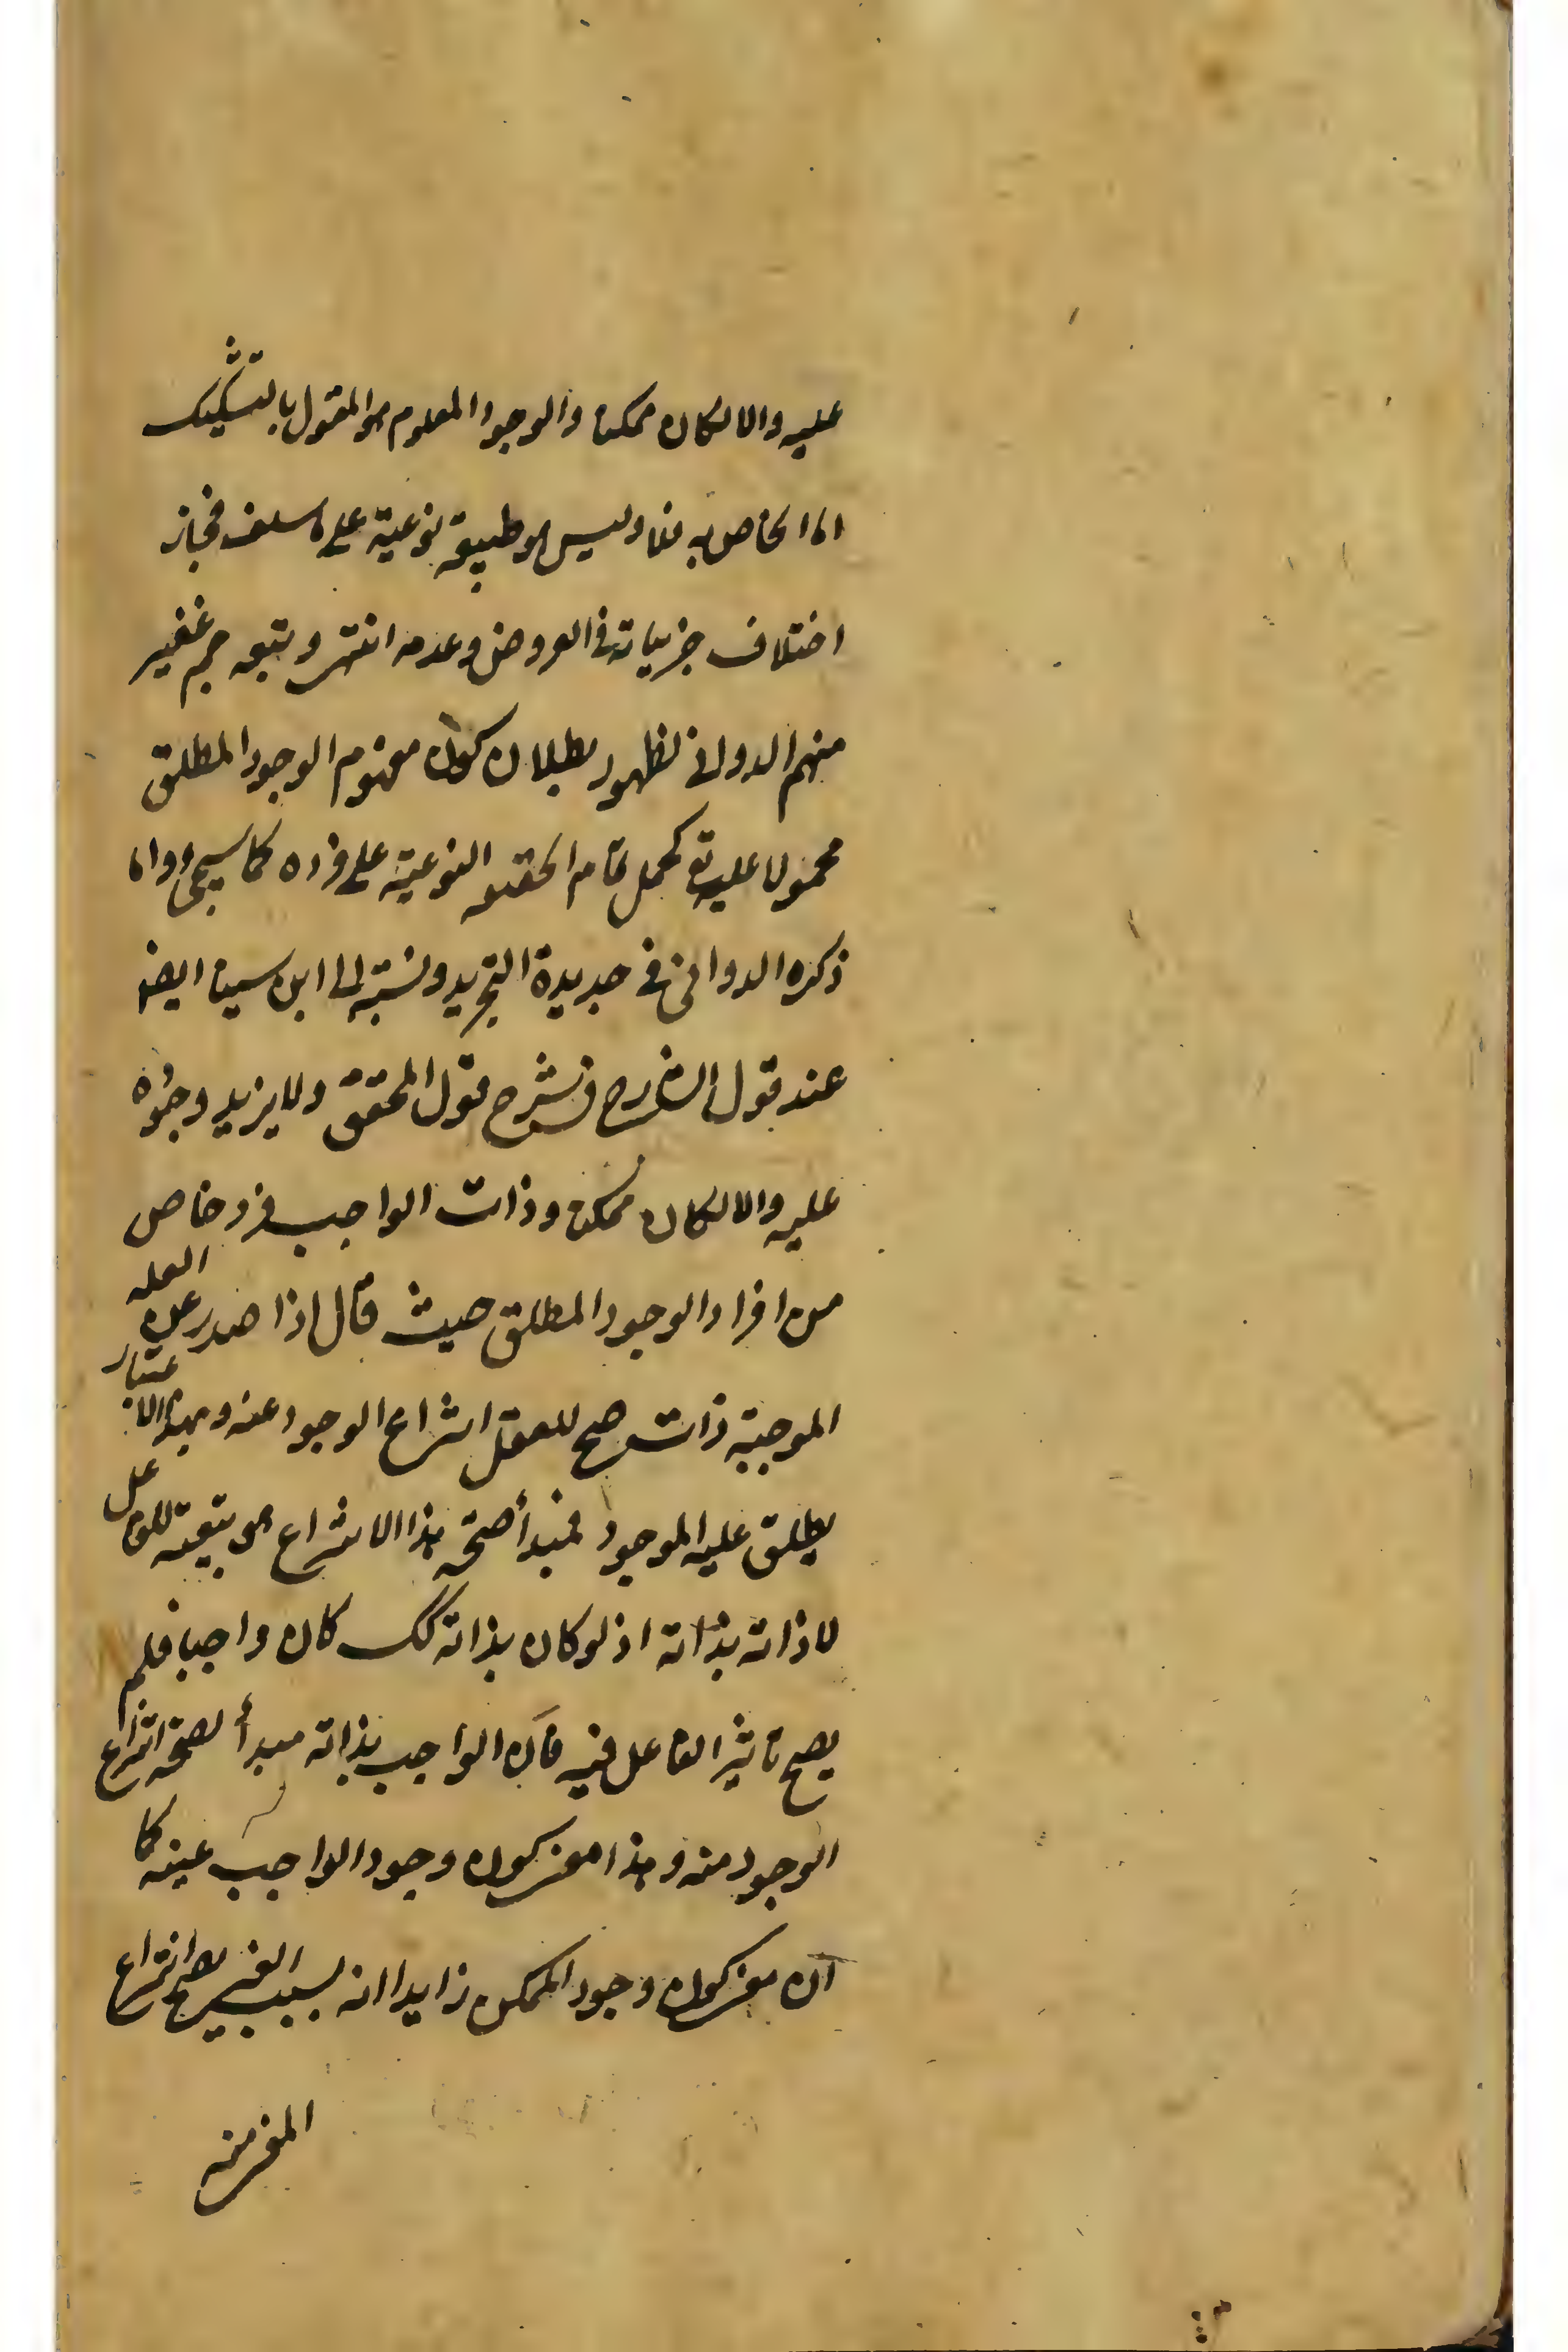 عليه والا لكان ممكنا والوجود المعلوم هو المقول بالتشكيك
اما الخاص به فلا وليس هو طبيعة نوعية على ما سلف فجاز
اختلاف جزئياته في العروض وعدمه انتهى وتبعه جم غفير
منهم الدواني لظهور بطلان كون مفهوم الوجود المطلق
محمولا عليه تع كحمل تمام الحقيقة النوعية على فرده كما سيجئ واما
ذكره الدواني في جديدة التجريد ونسبته الى ابن سينا ايضا
عند قول الشارح في شرح قول المحقق ولا يزيد وجوده
عليه والا لكان ممكنا وذات الواجب فرد خاص
من افراد الوجود المطلق حيث قال اذا صدر عن العلة
الموجبة ذات صح للعقل انتزاع الوجود عنه وبهذا الاعتبار
يطلق عليه الموجود فمبدأ صحة هذا الانتزاع هو تبعيته للفاعل
لا ذاته بذاته اذ لو كان بذاته كك كان واجبا فلم
يصح تاثير الفاعل فيه فان الواجب بذاته مبدأ لصحة انتزاع
الوجود منه وهذا معنى كون وجود الواجب عينه كما
ان معنى كون وجود الممكن زايدا انه بسبب الغير يصح انتزاع
المعنى منه